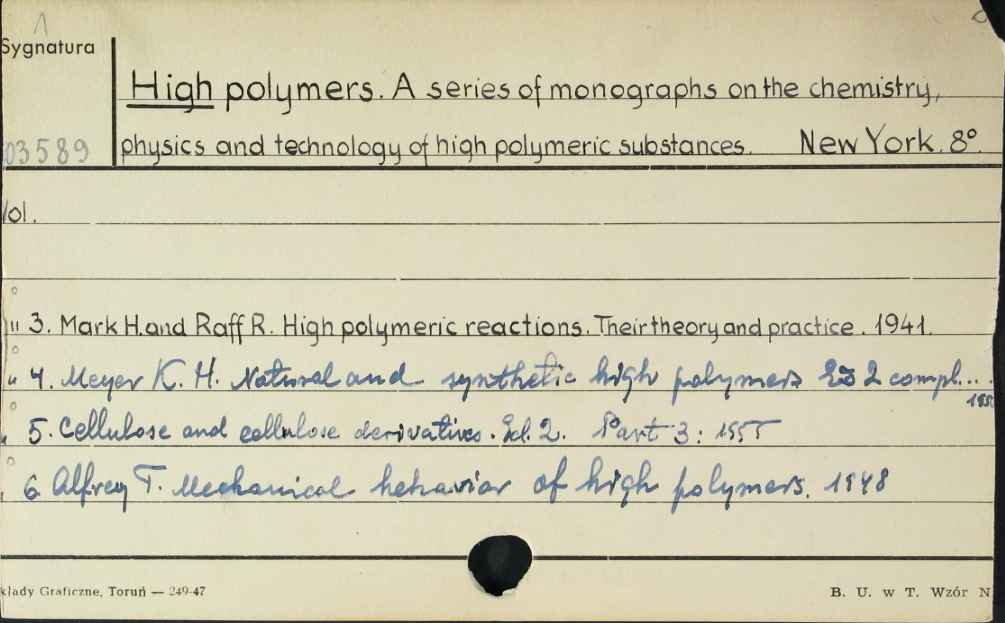 1
Sygnatura
High polymers. A series of monographs on the chemistry,
03589 physics and technology of high polymeric substances. New York. 8°.
Vol.
" 3. Mark H. and Raff R. High polymeric reactions. Their theory and practice. 1941.
" 4. Meyer K. H. Natural and synthetic high polymers Ed 2 compl...
5. Cellulose and cellulose derivatives. Ed. 2. Part 3: 1955
6. Alfrey T. Mechanical behavior of high polymers. 1948
kłady Graficzne, Toruń — 249-47 B. U. w T. Wzór N